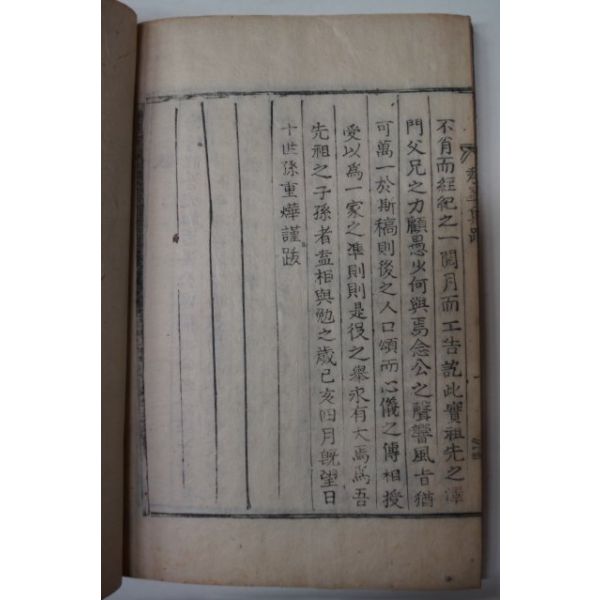 不肖而經紀之一閱月而工告訖此實祖先之澤
門父兄之力顧愚少何與焉念公之聲響風旨猶
可萬一於斯稿則後之人口頌而心儀之傳相授
受以為一家之準則則是役之舉永有大焉為吾
先祖之子孫者盍相與勉之歲己亥四月旣望日
十世孫重燁謹跋